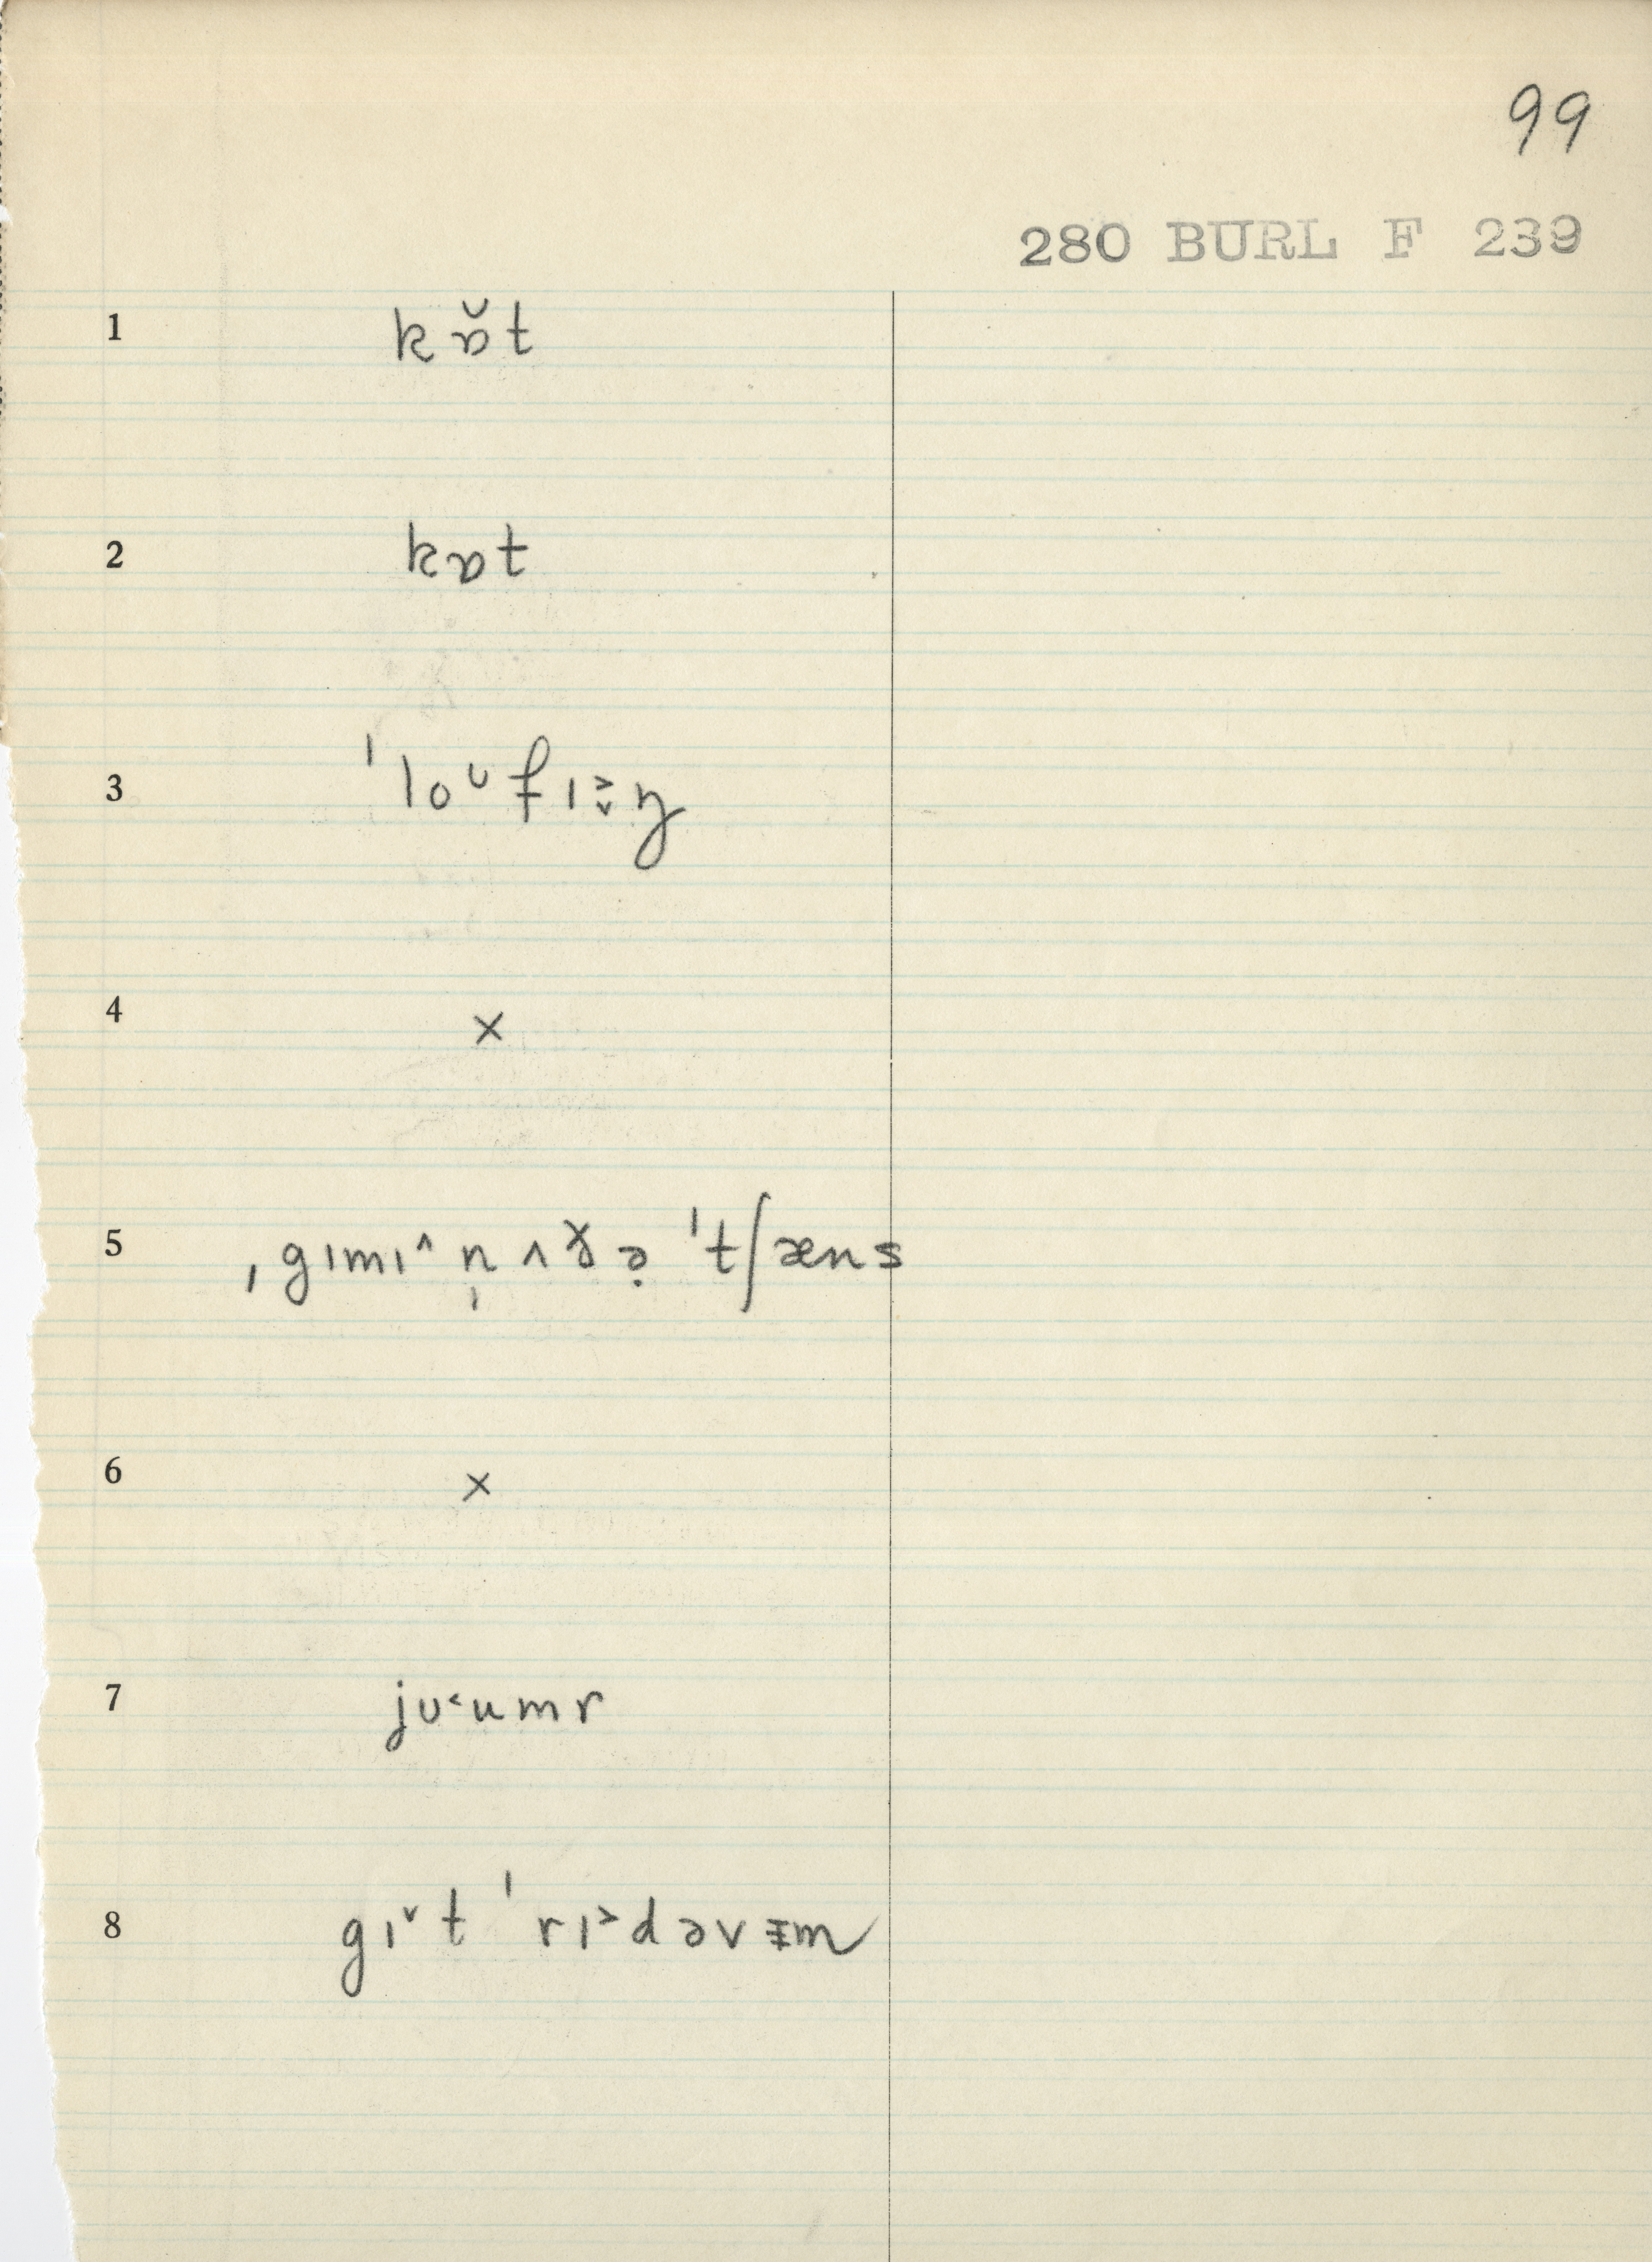 99
280 BURL F 239
1 kɒ̆t
2 kɒt
3 ˈloᴜfɪ˃˯ŋ
4 ×
5 ˌgɪmɪ^ n̩ʌðə̣ ˈtʃæns
6 ×
7 jᴜ˂umr
8 gɪ˅t ˈrɪ˃dəvᵻm